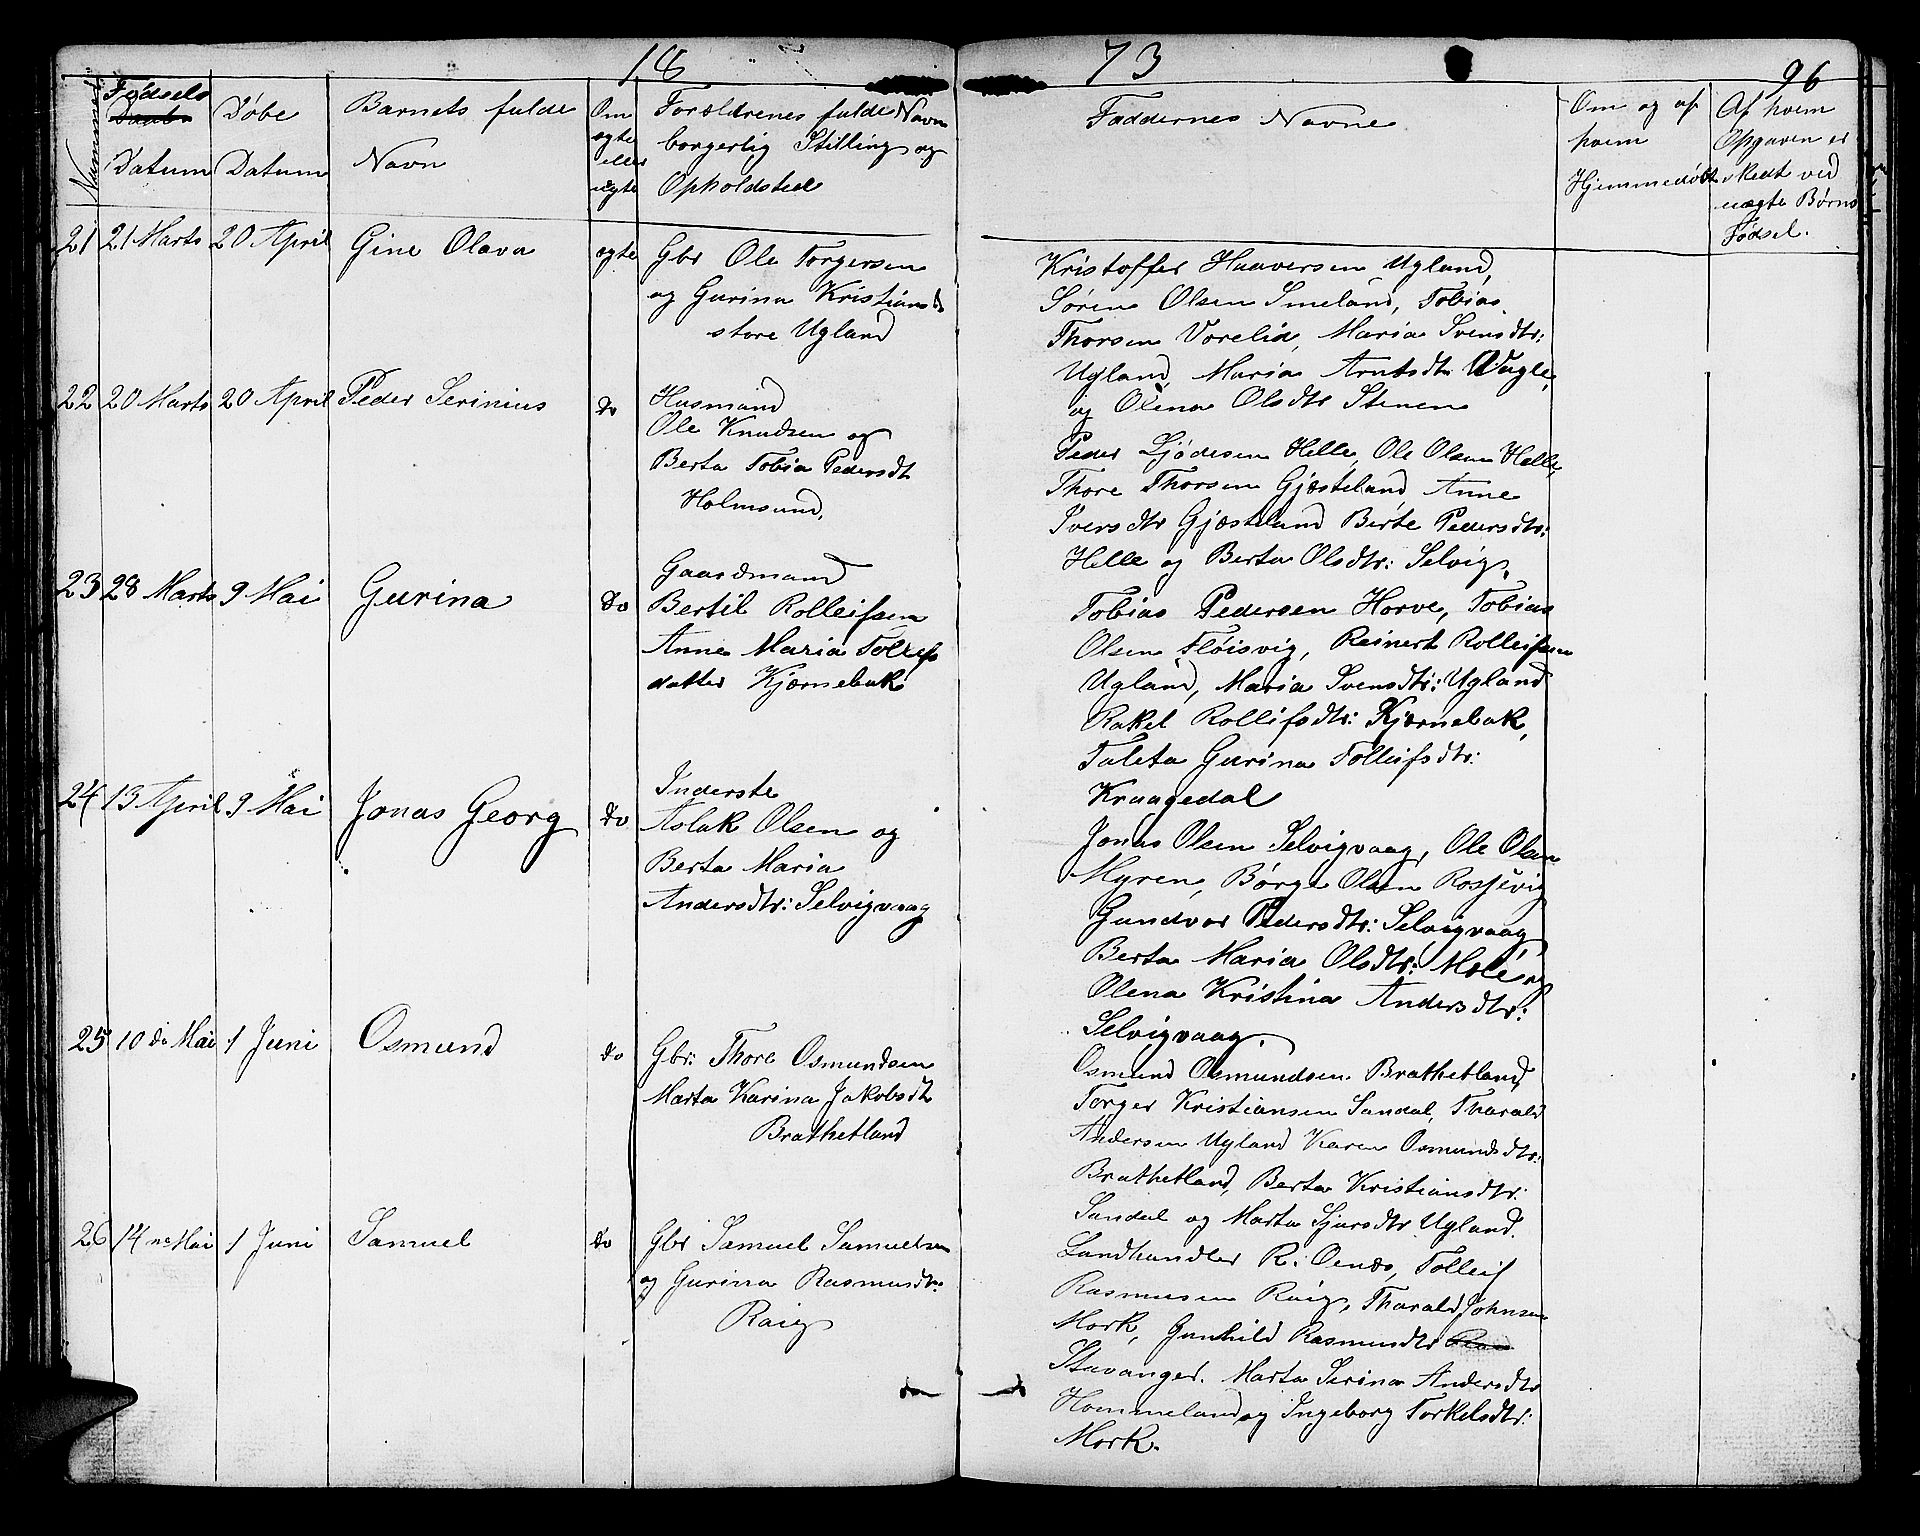 18
73
96
Nummer
Fødsels
Datum
Døbe
Datum
Barnets fulde
Navn
Om
egte
eller
uegte
Forældrenes fulde Navn
borgerlig Stilling og
Opholdsted
Faddernes Navne
Om og af
hvem
Hjemmedøbt
Af hvem
Opgaven er
skedt ved
uægte Børns
Fødsel.
21 21 Marts 20 April Gine Olava egte
Gbr Ole Torgersen
og Gurina Kristiansd
store Ugland
Kristoffer Haaversen Ugland,
Søren Olsen Smeland, Tobias
Thorsen Vorelid, Maria Svensdtr:
Ugland, Maria Arntsdt
og Olena Olsdtr Stenen
22 20 Marts 20 April Peder Serinius do
Husmand
Ole Knudsen og
Berta Tobia Pedersdt
Holmsund,
Peder Sjødesen Helle, Ole Olsen Helle,
Thore Thorsen Gjæsteland, Anne
Sversdtr Gjæsteland Berte Pedersdtr:
Helle og Berta Olsdtr: Selvig.
23 28 Marts 9 Mai Gurina do
Gaardmand
Bertil Rolleifsen
Anne Maria Tollefs
datter Kjørnebak
Tobias Pedersen Horve, Tobias
Olsen Fløisvig, Reinert Rolleifsen
Ugland, Maria Svensdtr: Ugland
Rakel Rollifsdtr: Kjørnebak,
Taleta Gurina Tolleifsdtr:
Kraagedal
24 13 April 9 Mai Jonas Georg do
Inderste
Aslak Olsen og
Berta Maria
Andersdtr: Selvigvaag
Jonas Olsen Selvigvaag, Ole Olsen
Myren, Børge Olsen Rosjevig
Gundvor Pedersdtr: Selvigvaag,
Berta Maria Olsdtr: Mole og
Olena Kristina Andersdtr:
Selvigvaag.
25 10 de Mai 1 Juni Osmund do
Gbr: Thore Osmundsen
Marta Karina Jakobsdt
Brathetland
Osmund Osmundsen Brathetland,
Torger Kristiansen Sandal, Tharald
Andersen Ugland Karen Osmundsdtr:
Brathetland, Berta Kristiansdtr:
Sandal og Marta Sjursdtr Ugland.
26 14 ne Mai 1 Juni Samuel do
Gbr Samuel Samuelsen
og Gurina Rasmusdtr:
Raig
Landhandler R: Oenæs, Tolleif
Rasmusen Raig, Tharald Johnsen
Mork, Gunhild Rasmusdtr
Stavanger. Marta Serina Andersdtr
Hommeland og Ingeborg Torkelsdtr:
Mork.